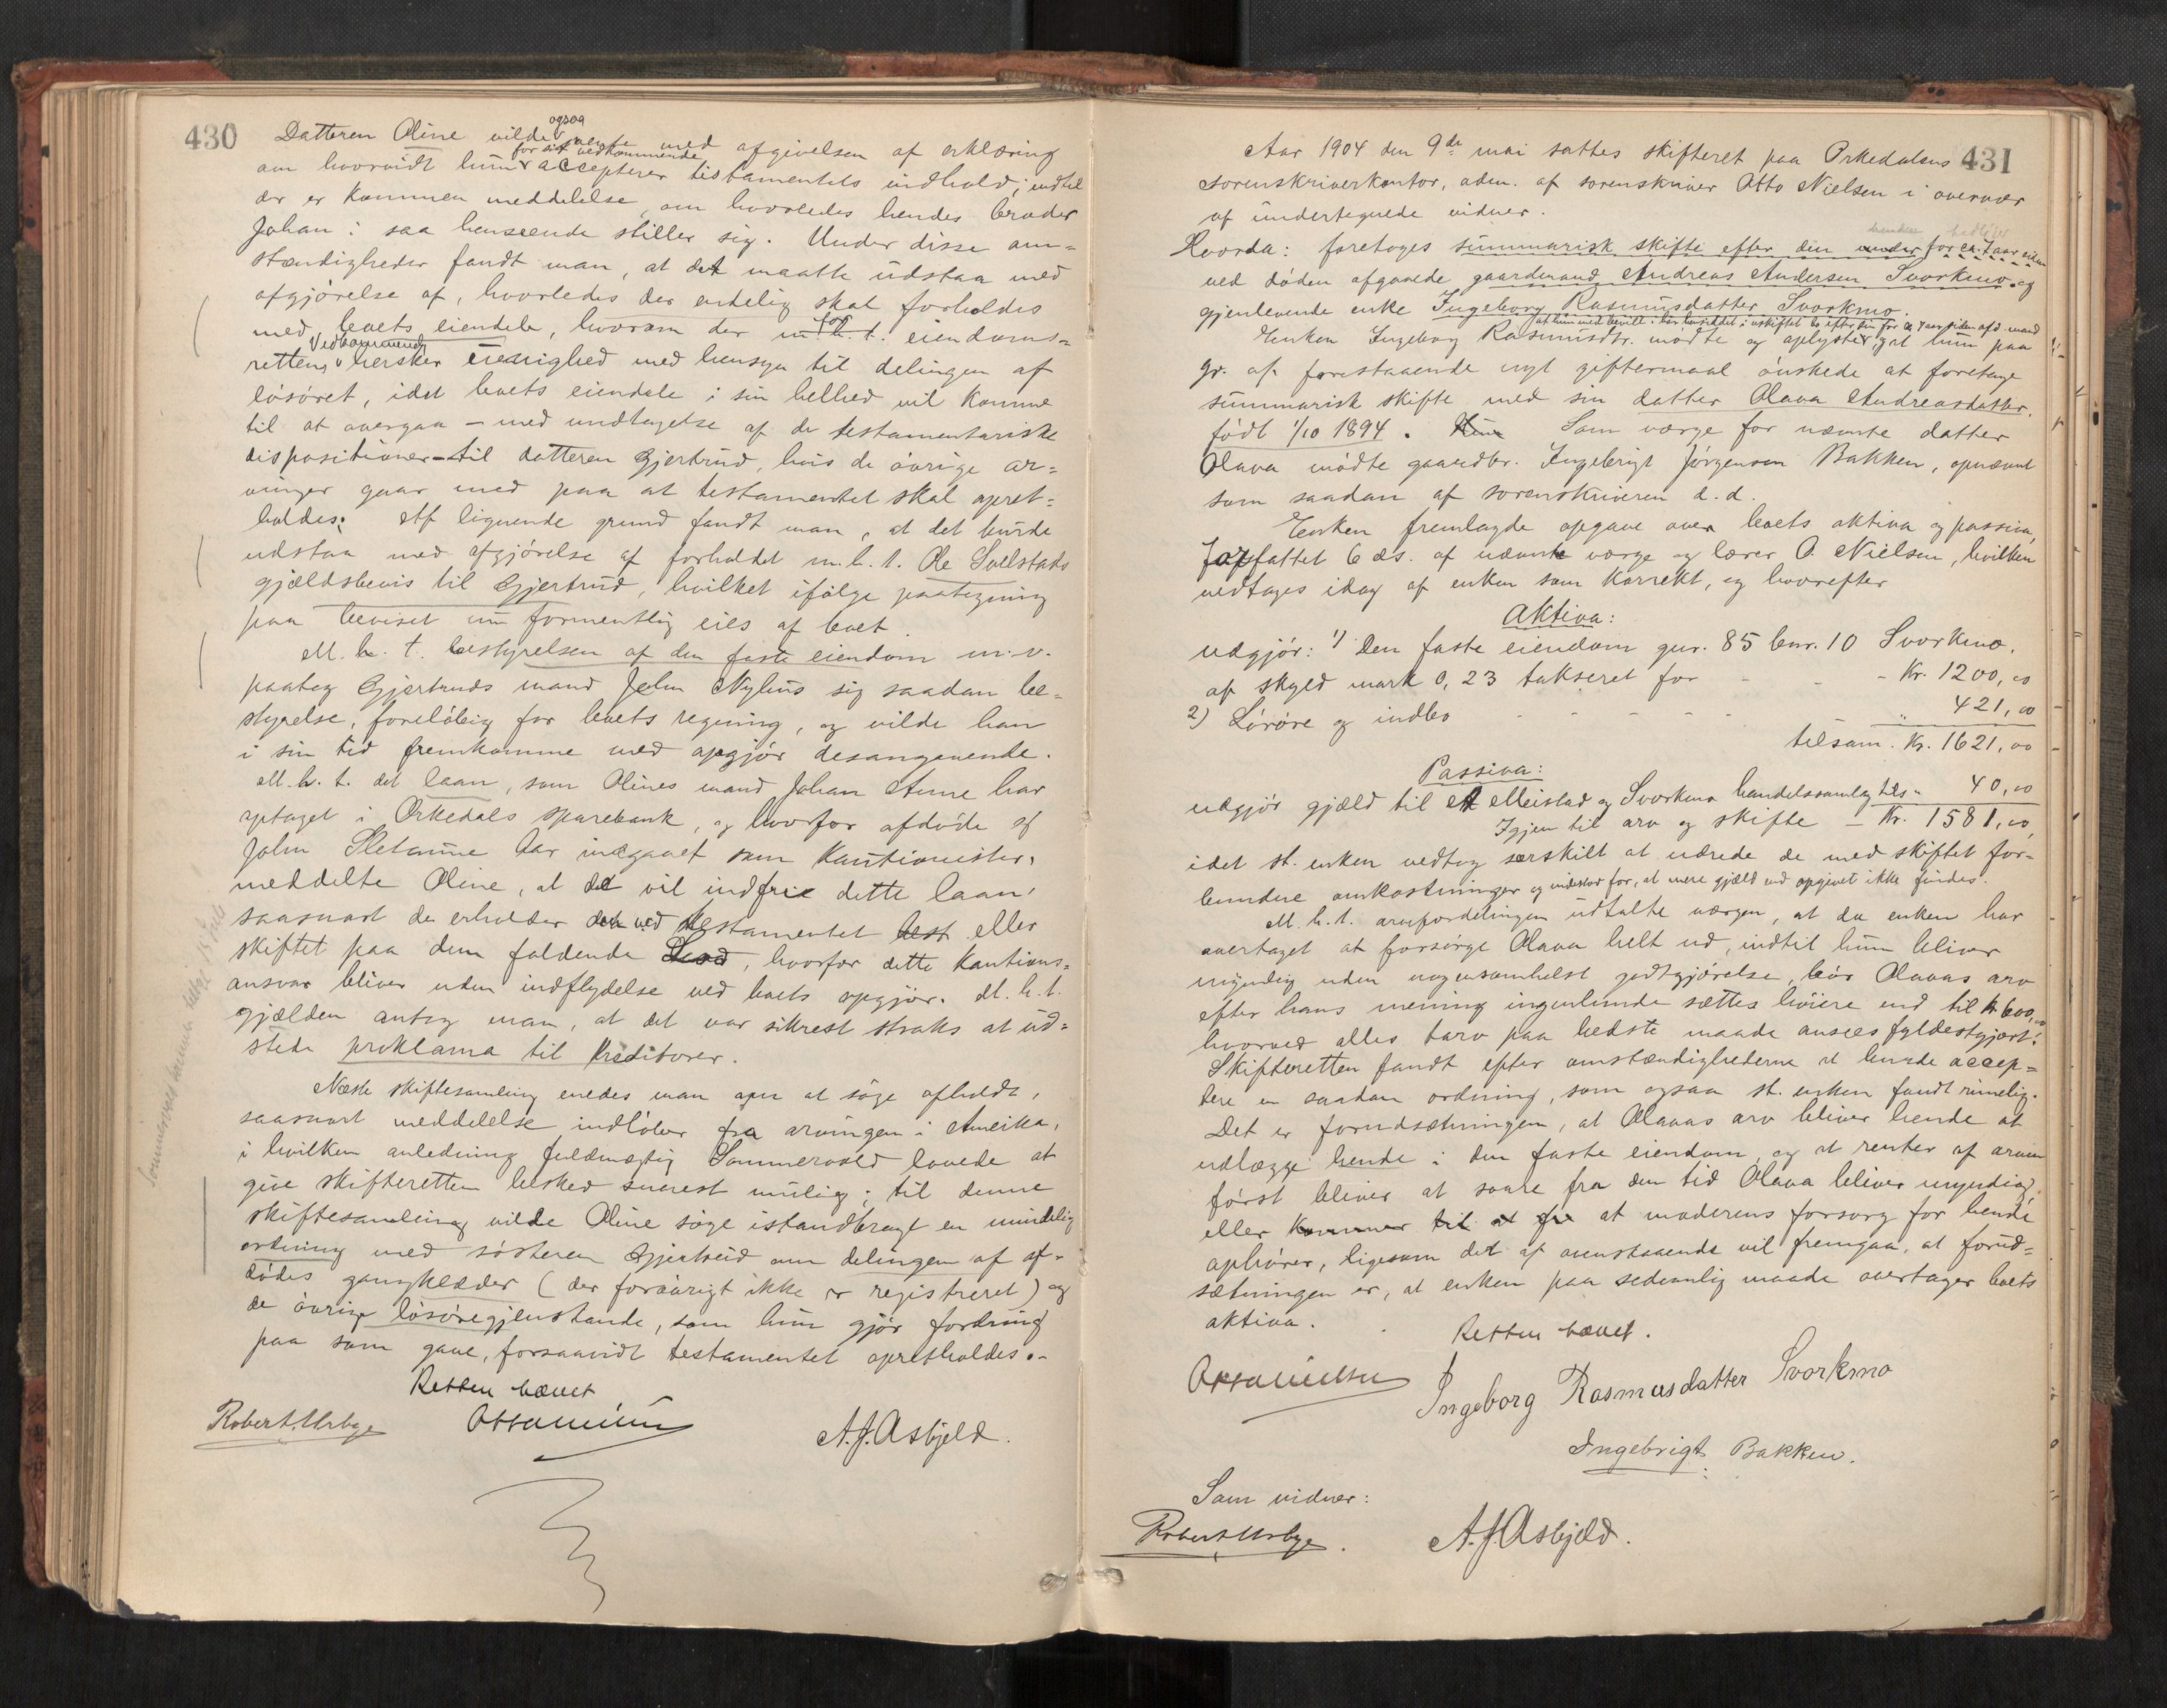 430
Datteren Oline vilde ogsaa vente med afgivelsen af erklæring
om hvorvidt hun for sit vedkommende accepterer testamentets indhold, indtil
der er kommen meddelelse om hvorledes hendes broder
Johan i saa henseende stiller sig. Under disse om=
stændigheder fandt man, at det maatte udstaa med
afgjørelse af, hvorledes der endelig skal forholdes
med boets eiendele, hvorom der for eiendoms=
rettens Vedkommende hersker uenighed med hensyn til delingen af
løsøret, idet boets eiendele i sin helhed vil komme
til at overgaa – med undtagelse af de testamentariske
dispositioner – til datteren Gjertrud, hvis de øvrige ar=
vinger gaar med paa at testamentet skal opret=
holdes. Af lignende grund fandt man, at det burde
udstaa med afgjørelse af forholdet m.h.t. Ole Svelstads
gjældsbevis til Gjertrud, hvilket ifølge paategning
paa beviset nu formentlig eies af boet.
M. h. t. bestyrelsen af den faste eiendom m.v.
paatog Gjertruds mand John Nyhus sig saadan be=
styrelse, foreløbig for boets regning, og vilde han
i sin tid fremkomme med opgjør desangaaende.
M. h. t. det laan, som Olines mand Johan Aune har
optaget i Orkedals sparebank, og hvorfor afdøde og
John Sletaune har indgaaet som kautionister,
meddelte Oline, at de vil indfrie dette laan,
saasnart de erholder den ved testamentet best eller
skiftet paa dem faldende Lod, hvorfor dette kautions=
ansvar bliver uden indflydelse ved boets opgjør. M. h. t.
gjælden antog man, at det var sikrest straks at ud=
stede proklama til kreditorer.
Næste skiftesamling enedes man om at søge afholdt,
saasnart meddelelse indløber fra arvingen i Amerika,
i hvilken anledning fuldmægtig Sommervold lovede at
give skifteretten besked snarest mulig; til denne
skiftesamling vilde Oline søge istandbragt en mindelig
ordning med søsteren Gjertrud om delingen af af=
dødes gangklæder (der forøvrigt ikke er registreret) og
de øvrige løsøregjenstande, som hun gjør fordring
paa som gave, forsaavidt testamentet opretholdes.–
Retten hævet
Robert Urbye Otto Nielsen A.J. Asbjeld.
431
Aar 1904 den 9de mai sattes skifteret paa Orkedalens
sorenskriverkontor, adm. af sorenskriver Otto Nielsen i overvær
af undertegnede vidner.
Hvorda: foretoges summarisk skifte efter den under for ca. 7 aar siden
ved døden afgaaede gaardmand Andreas Andersen Svorkmo og
gjenlevende enke Ingeborg Rasmusdatter Svorkmo.
at hun med bevilling har hensiddet i uskiftet bo efter sin for ca. 7 aar siden afd. mand
Enken Ingeborg Rasmusdtr. mødte og oplyste, at hun paa
gr. af forestaaende nyt giftermaal ønskede at foretage
summarisk skifte med sin datter Olava Andreasdatter,
født 1/10 1894. Hun Som værge for nævnte datter
Olava mødte gaardbr. Ingebrigt Jørgensen Bakken, opnævnt
som saadan af sorenskriveren d.d.
Enken fremlagde opgave over boets aktiva og passiva,
forfattet 6 ds. af nævnte værge og lærer O. Nielsen, hvilken
vedtages idag af enken som korrekt, og hvorefter
Aktiva:
udgjør: 1) Den faste eiendom gnr. 85 bnr. 10 Svorkmo,
af skyld mark 0,23 takseret for - - - Kr. 1200,00
2) Løsøre og indbo - - - - - " 421,00
tilsam. Kr. 1621,00
Passiva:
udgjør gjæld til Meistad og Svorkmo handelssamlag tils. " 40,00
Igjen til arv og skifte – Kr. 1581,00,
idet st. enken vedtog særskilt at udrede de med skiftet for=
bundne omkostninger og indestod for, at mere gjæld end opgivet ikke findes.
M. h. t. arvefordelingen udtalte værgen, at da enken har
overtaget at forsørge Olava helt ud, indtil hun bliver
myndig uden nogensomhelst godtgjørelse, bør Olavas arv
efter hans mening ingenlunde sættes høiere end til Kr 600,00
hvorved alles tarv paa bedste maade ansees fyldestgjort.
Skifteretten fandt efter omstændighederne at burde accep=
tere en saadan ordning, som ogsaa st. enken fandt rimelig.
Det er forudsætningen, at Olavas arv bliver hende at
udlægge hende i den faste eiendom, og at renter af arven
først bliver at svare fra den tid Olava bliver myndig,
eller kommer til at fra at moderens forsørg for hende
ophører, ligesom det af ovenstaaende vil fremgaa, at forud=
sætningen er, at enken paa sedvanlig maade overtager boets
aktiva.
Retten hævet.
Otto Nielsen Ingeborg Rasmusdatter Svorkmo
Ingebrigt Bakken.
Som vidner:
Robert Urbye. A.J. Asbjeld.